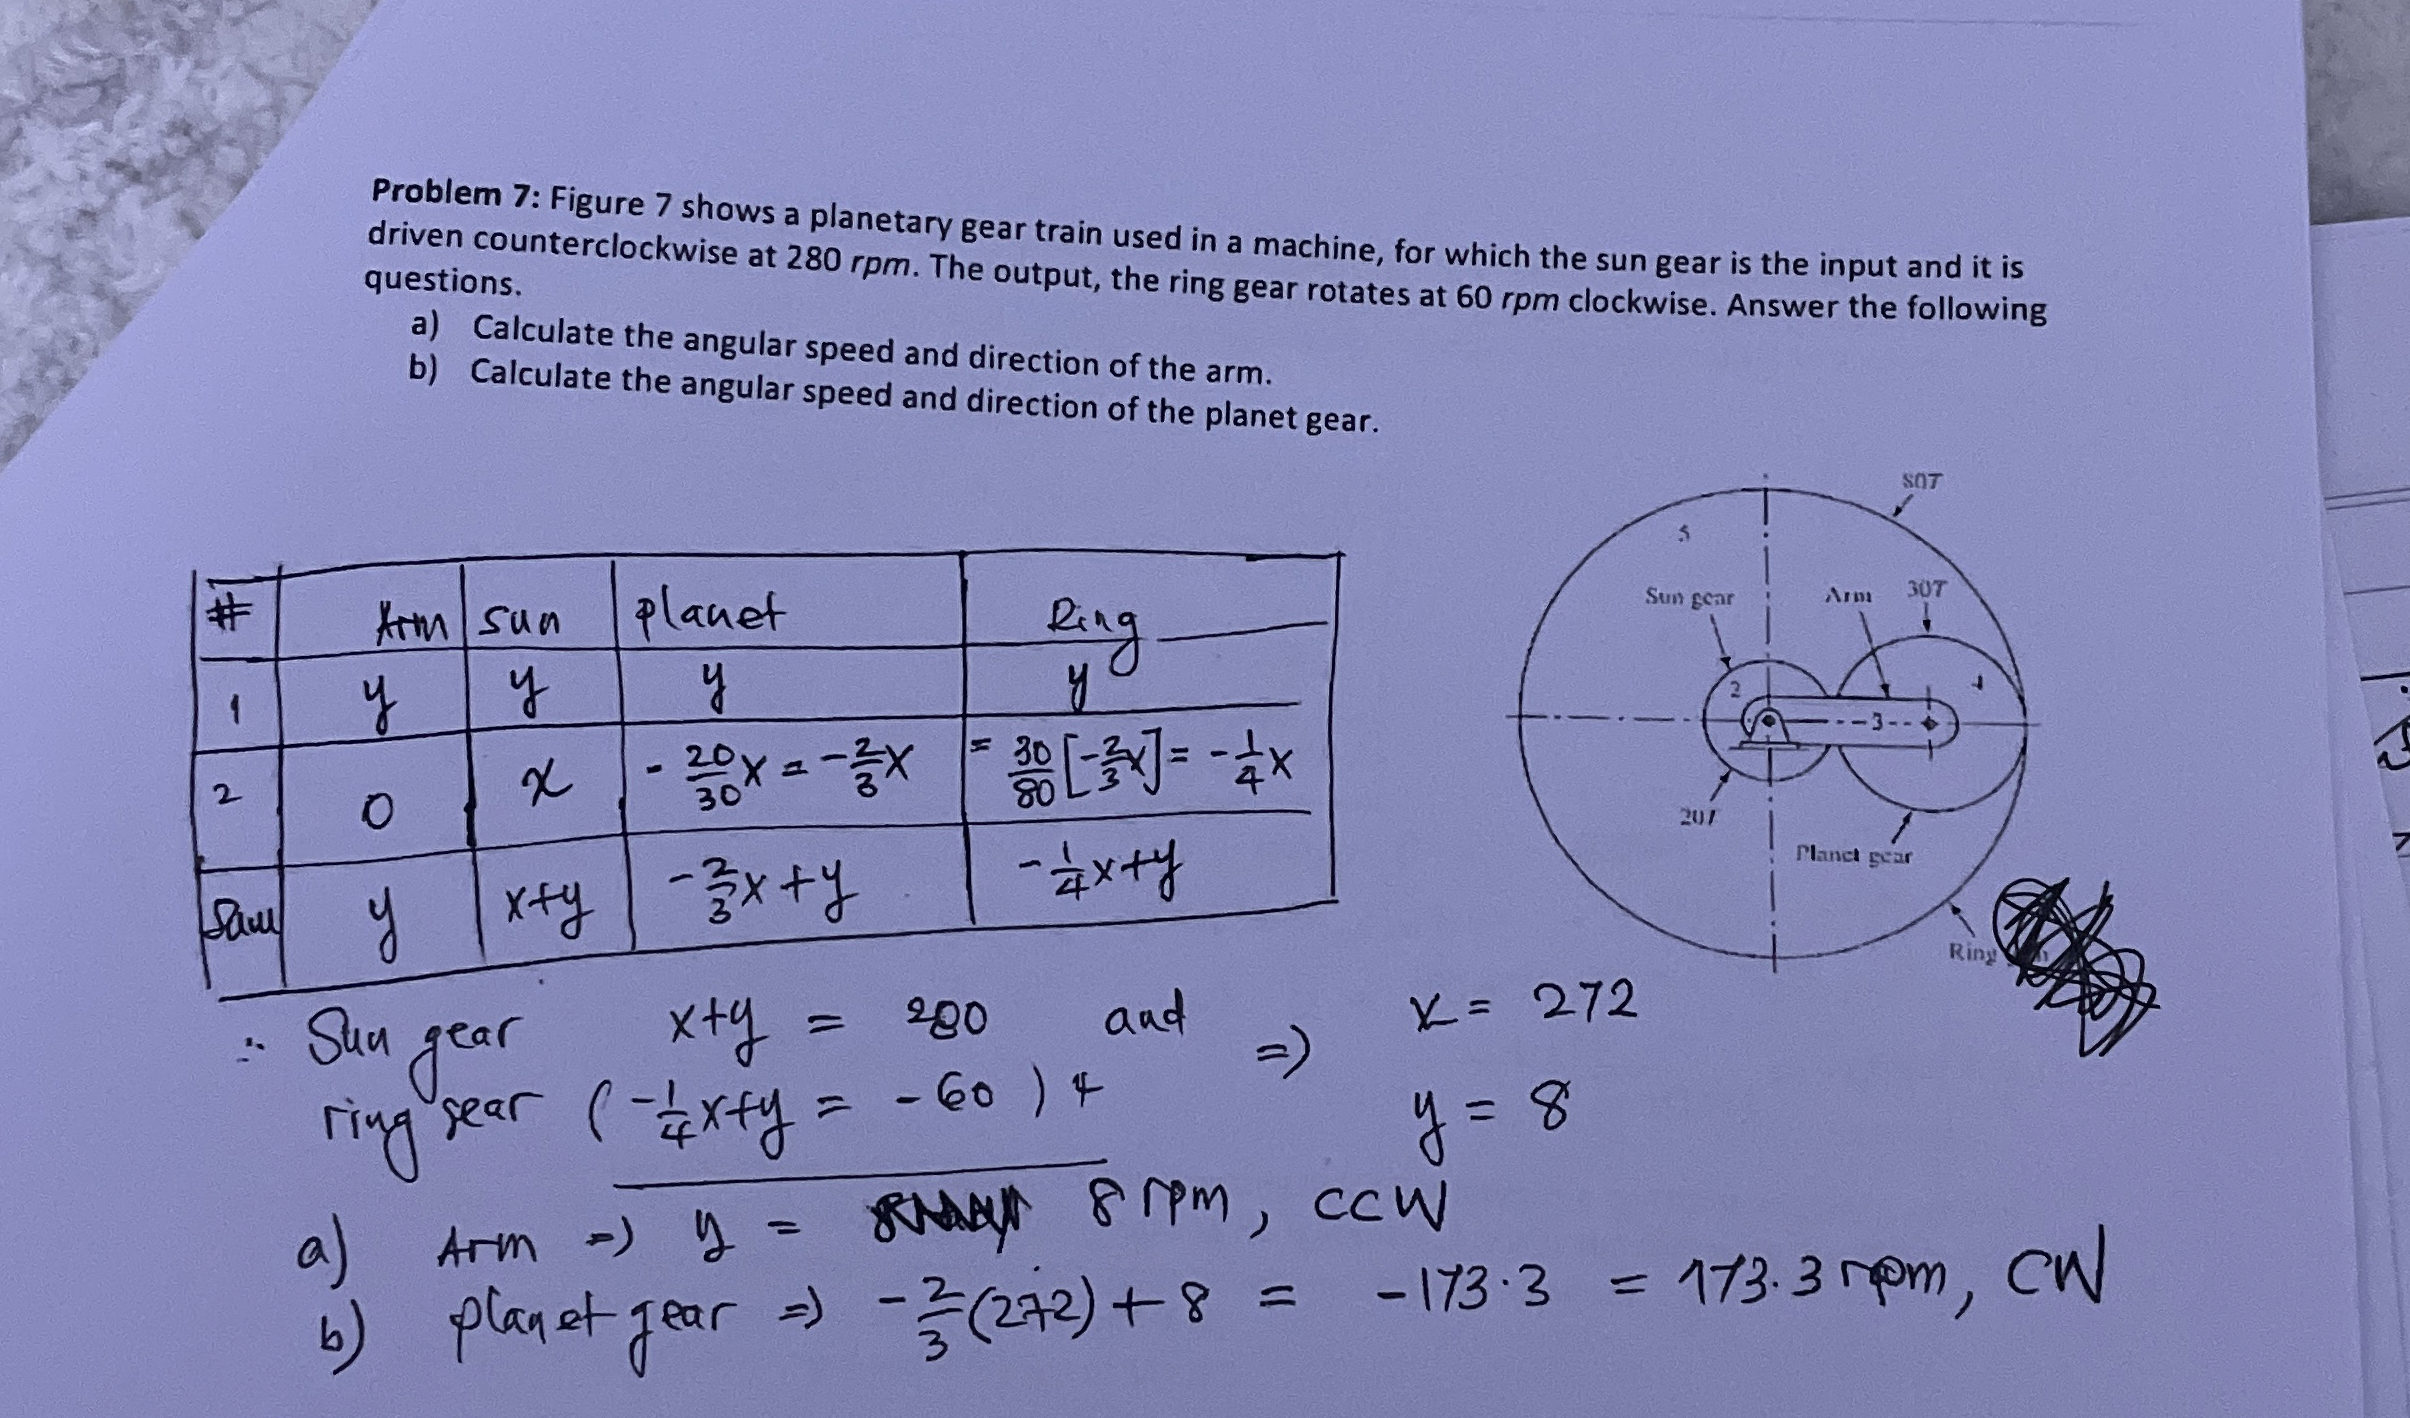 Problem 7: Figure 7 shows a planetary gear train used in a machine, for which the sun gear is the input and it is
driven counterclockwise at 280 rpm. The output, the ring gear rotates at 60 rpm clockwise. Answer the following
questions.
a) Calculate the angular speed and direction of the arm.
b) Calculate the angular speed and direction of the planet gear.
80T
5
Sun gear Arm 30T
2 3 4
20T
Planet gear
Ring
# Arm sun planet Ring
1 y y y y
2 0 x - 20/30 x = - 2/3 x = 30/80 [- 2/3 x] = - 1/4 x
Sum y x+y - 2/3 x + y - 1/4 x + y
∴ Sun gear x+y = 280 and
ring gear (- 1/4 x+y = - 60 ) 4
=> x = 272
y = 8
a) Arm => y = 8 rpm, CCW
b) planet gear => - 2/3 (272) + 8 = - 173.3 = 173.3 rpm, CW